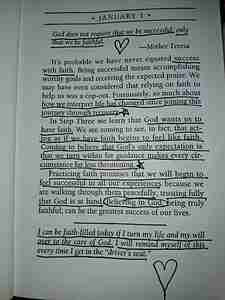 • JANUARY 1 •
God does not require that we be successful, only
that we be faithful.
—Mother Teresa
It's probable we have never equated success
with faith. Being successful means accomplishing
worthy goals and receiving the expected praise. We
may even have considered that relying on faith to
help us was a cop-out. Fortunately, so much about
how we interpret life has changed since joining this
journey through recovery.
In Step Three we learn that God wants us to
have faith. We are coming to see, in fact, that act-
ing as if we have faith begins to feel like faith.
Coming to believe that God's only expectation is
that we turn within for guidance makes every cir-
cumstance far less threatening.
Practicing faith promises that we will begin to
feel successful in all our experiences because we
are walking through them peacefully, trusting fully
that God is at hand. Believing in God, being truly
faithful, can be the greatest success of our lives.
I can be faith-filled today if I turn my life and my will
over to the care of God. I will remind myself of this
every time I get in the "driver's seat."